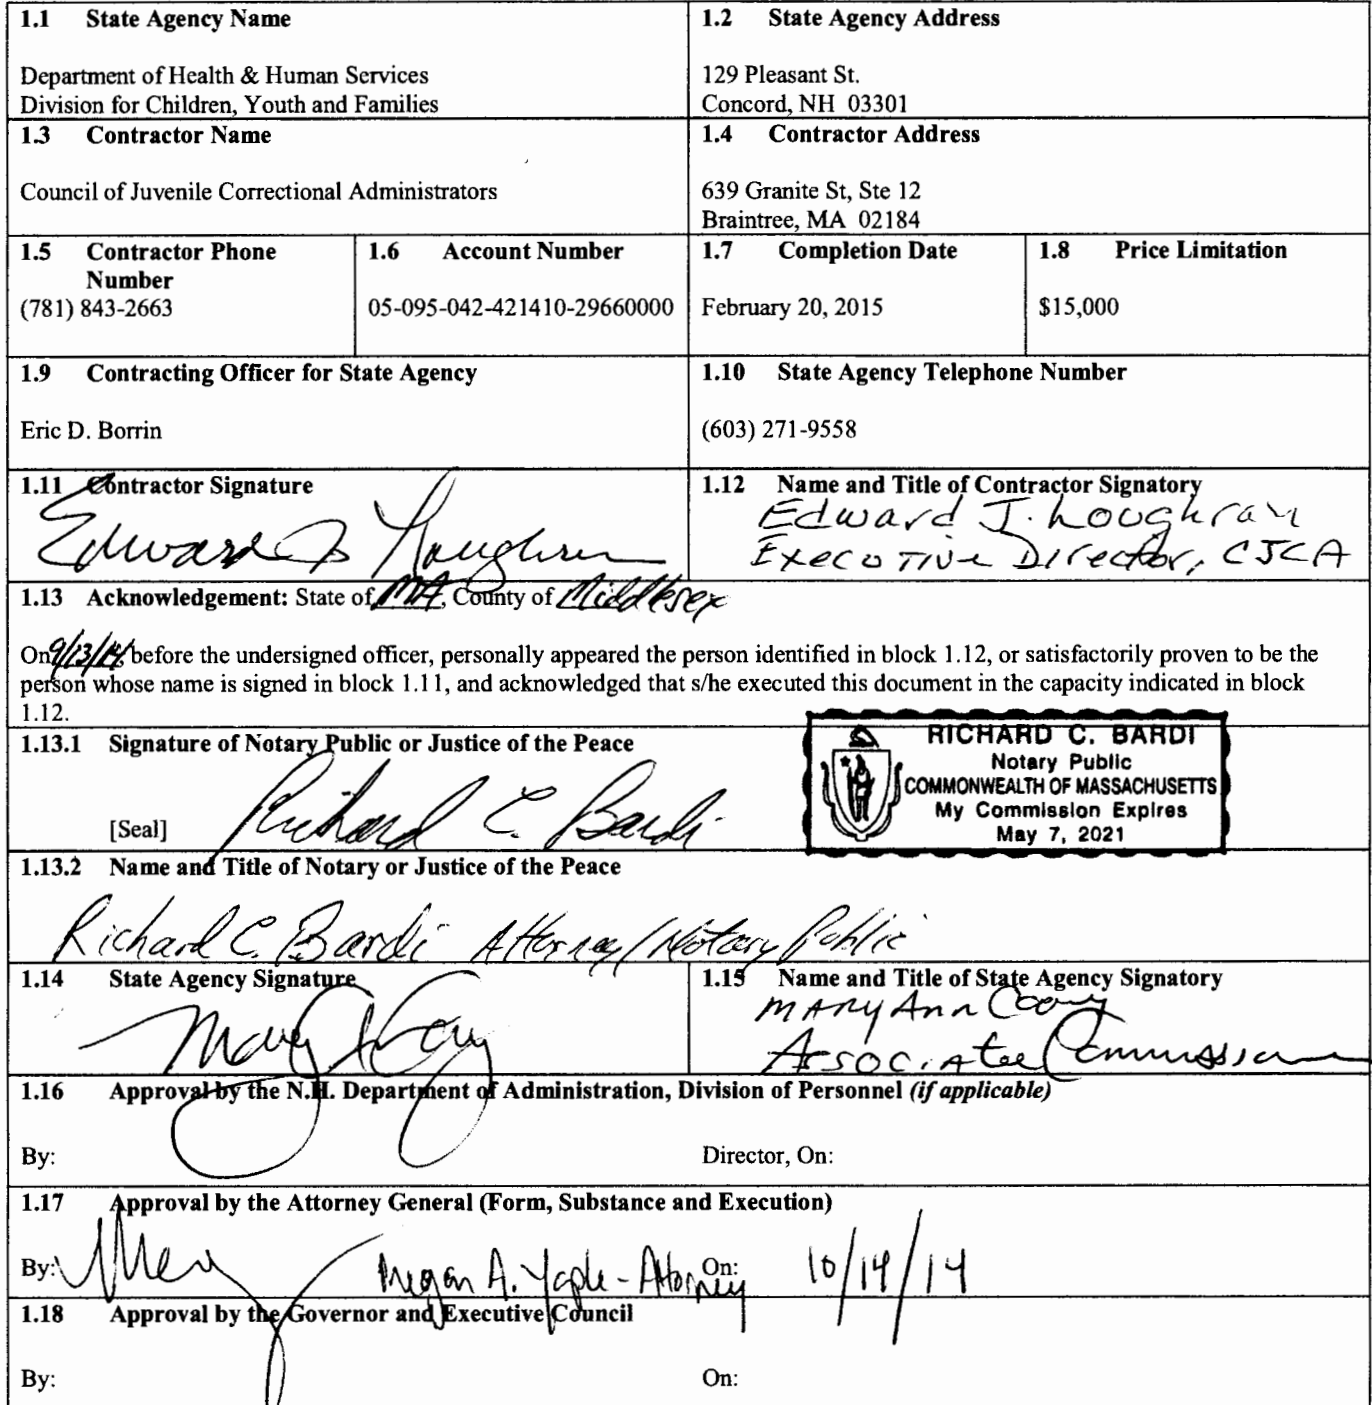 1.1 State Agency Name
Department of Health & Human Services
Division for Children, Youth and Families
1.2 State Agency Address
129 Pleasant St.
Concord, NH 03301
1.3 Contractor Name
Council of Juvenile Correctional Administrators
1.4 Contractor Address
639 Granite St, Ste 12
Braintree, MA 02184
1.5 Contractor Phone
Number
(781) 843-2663
1.6 Account Number
05-095-042-421410-29660000
1.7 Completion Date
February 20, 2015
1.8 Price Limitation
$15,000
1.9 Contracting Officer for State Agency
Eric D. Borrin
1.10 State Agency Telephone Number
(603) 271-9558
1.11 Contractor Signature
Edward J Loughran
1.12 Name and Title of Contractor Signatory
Edward J. Loughran
Executive Director, CJCA
1.13 Acknowledgement: State of MA, County of Middlesex
On 9/13/14, before the undersigned officer, personally appeared the person identified in block 1.12, or satisfactorily proven to be the
person whose name is signed in block 1.11, and acknowledged that s/he executed this document in the capacity indicated in block
1.12.
1.13.1 Signature of Notary Public or Justice of the Peace
[Seal] Richard C. Bardi
RICHARD C. BARDI
Notary Public
COMMONWEALTH OF MASSACHUSETTS
My Commission Expires
May 7, 2021
1.13.2 Name and Title of Notary or Justice of the Peace
Richard C. Bardi Attorney/Notary Public
1.14 State Agency Signature
1.15 Name and Title of State Agency Signatory
Mary Ann Cooney
Associate Commissioner
1.16 Approval by the N.H. Department of Administration, Division of Personnel (if applicable)
By: Director, On:
1.17 Approval by the Attorney General (Form, Substance and Execution)
By: Megan A. Yaple - Attorney On: 10/14/14
1.18 Approval by the Governor and Executive Council
By: On: